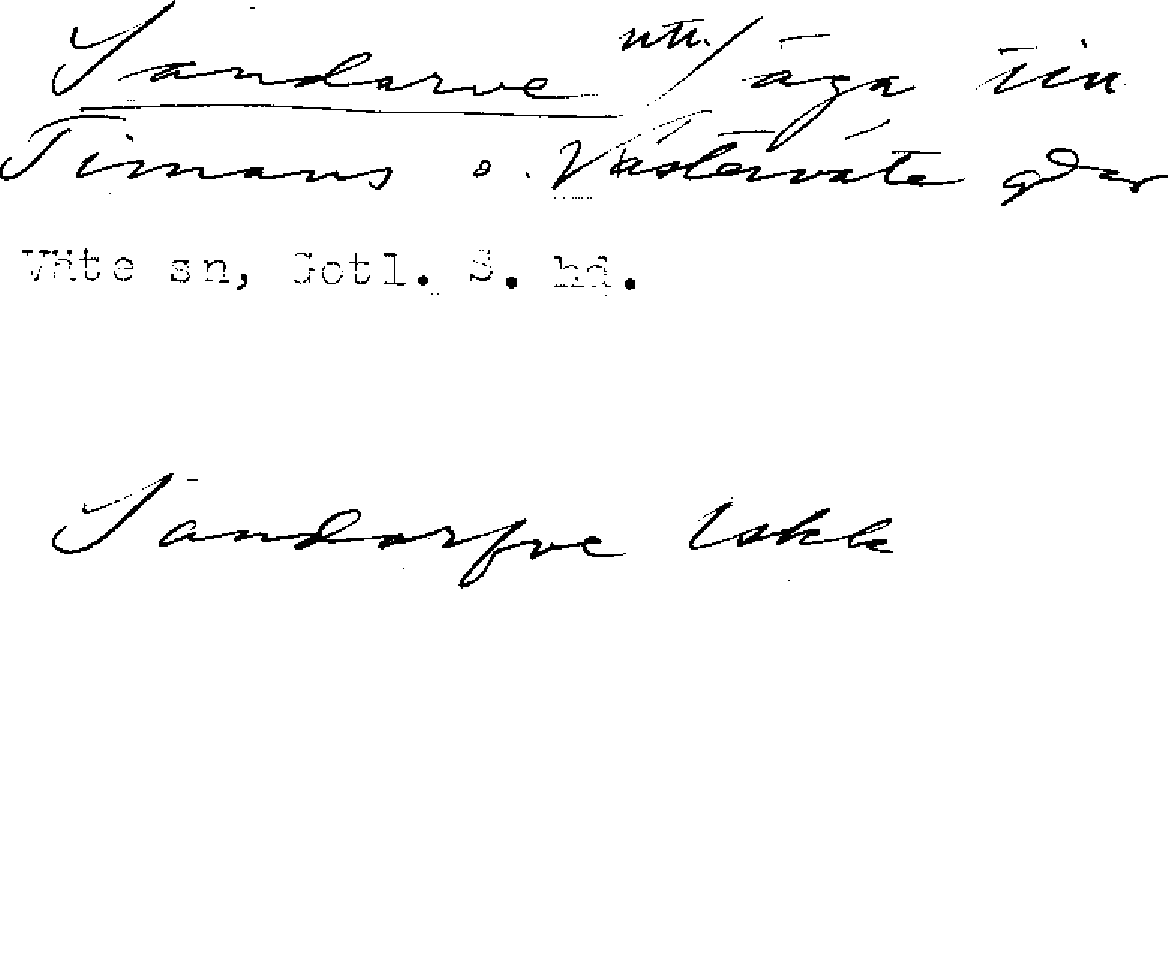 Sandarve utr./ äga iin
Timans o. Västerväte gdar
Väte sn, Gotl. S. hd.
Sandarfve Uskk